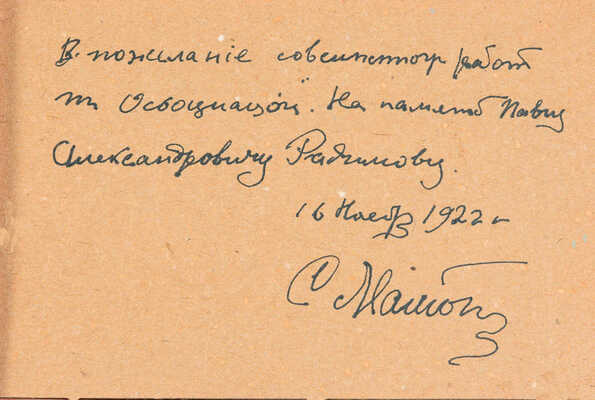 В пожелание совместной работ
по Ассоциации. На память Павлу
Александровичу Радимову.
16 Нояб 1922 г
С Малютин